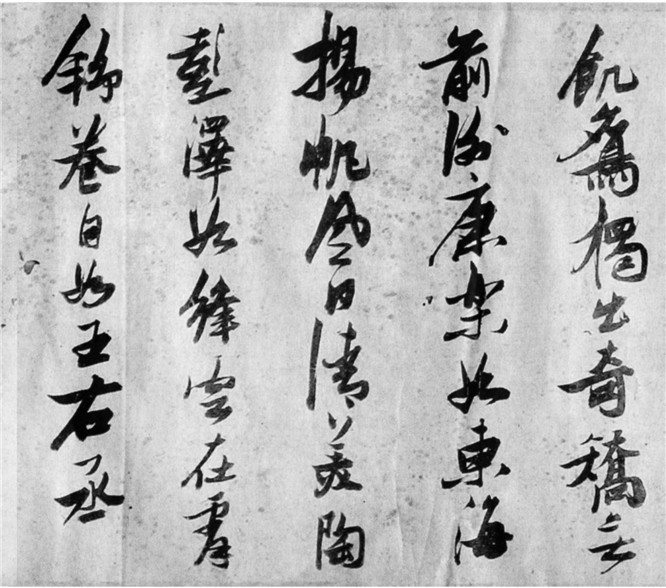 飢鷹獨出奇矯无
前謝康樂如東海
揚帆風日清美陶
彭澤如絳雲在霄
舒卷自如王右丞